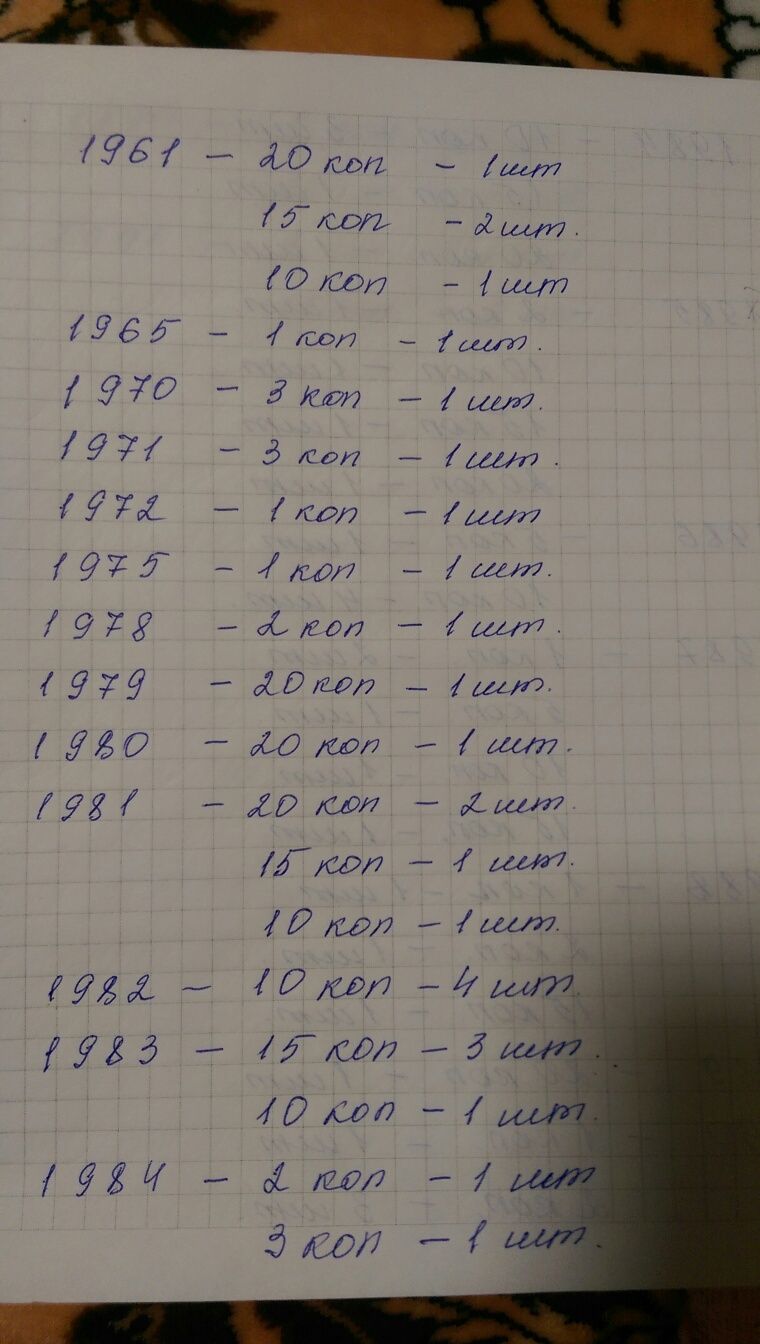 1961 - 20 коп - 1 шт
15 коп - 2 шт.
10 коп - 1 шт
1965 - 1 коп - 1 шт.
1970 - 3 коп - 1 шт.
1971 - 3 коп - 1 шт.
1972 - 1 коп - 1 шт
1975 - 1 коп - 1 шт.
1978 - 2 коп - 1 шт.
1979 - 20 коп - 1 шт.
1980 - 20 коп - 1 шт.
1981 - 20 коп - 2 шт.
15 коп - 1 шт.
10 коп - 1 шт.
1982 - 10 коп - 4 шт.
1983 - 15 коп - 3 шт.
10 коп - 1 шт.
1984 - 2 коп - 1 шт
3 коп - 1 шт.